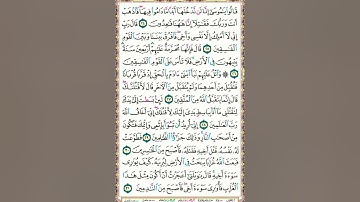 قَالُوا۟ يَٰمُوسَىٰٓ إِنَّا لَن نَّدْخُلَهَآ أَبَدًا مَّا دَامُوا۟ فِيهَا فَٱذْهَبْ
أَنتَ وَرَبُّكَ فَقَٰتِلَآ إِنَّا هَٰهُنَا قَٰعِدُونَ قَالَ رَبِّ
إِنِّى لَآ أَمْلِكُ إِلَّا نَفْسِى وَأَخِى فَٱفْرُقْ بَيْنَنَا وَبَيْنَ ٱلْقَوْمِ
ٱلْفَٰسِقِينَ قَالَ فَإِنَّهَا مُحَرَّمَةٌ عَلَيْهِمْ أَرْبَعِينَ سَنَةً
يَتِيهُونَ فِى ٱلْأَرْضِ فَلَا تَأْسَ عَلَى ٱلْقَوْمِ ٱلْفَٰسِقِينَ
وَٱتْلُ عَلَيْهِمْ نَبَأَ ٱبْنَىْ ءَادَمَ بِٱلْحَقِّ إِذْ قَرَّبَا قُرْبَانًا
فَتُقُبِّلَ مِنْ أَحَدِهِمَا وَلَمْ يُتَقَبَّلْ مِنَ ٱلْءَاخَرِ قَالَ لَأَقْتُلَنَّكَ
قَالَ إِنَّمَا يَتَقَبَّلُ ٱللَّهُ مِنَ ٱلْمُتَّقِينَ لَئِنۢ بَسَطتَ إِلَىَّ يَدَكَ
لِتَقْتُلَنِى مَآ أَنَا۠ بِبَاسِطٍ يَدِىَ إِلَيْكَ لِأَقْتُلَكَ إِنِّىٓ أَخَافُ ٱللَّهَ
رَبَّ ٱلْعَٰلَمِينَ إِنِّىٓ أُرِيدُ أَن تَبُوٓأَ بِإِثْمِى وَإِثْمِكَ فَتَكُونَ
مِنْ أَصْحَٰبِ ٱلنَّارِ وَذَٰلِكَ جَزَٰٓؤُا۟ ٱلظَّٰلِمِينَ فَطَوَّعَتْ
لَهُۥ نَفْسُهُۥ قَتْلَ أَخِيهِ فَقَتَلَهُۥ فَأَصْبَحَ مِنَ ٱلْخَٰسِرِينَ
فَبَعَثَ ٱللَّهُ غُرَابًا يَبْحَثُ فِى ٱلْأَرْضِ لِيُرِيَهُۥ كَيْفَ يُوَٰرِى
سَوْءَةَ أَخِيهِ قَالَ يَٰوَيْلَتَىٰٓ أَعَجَزْتُ أَنْ أَكُونَ مِثْلَ هَٰذَا
ٱلْغُرَابِ فَأُوَٰرِىَ سَوْءَةَ أَخِى فَأَصْبَحَ مِنَ ٱلنَّٰدِمِينَ